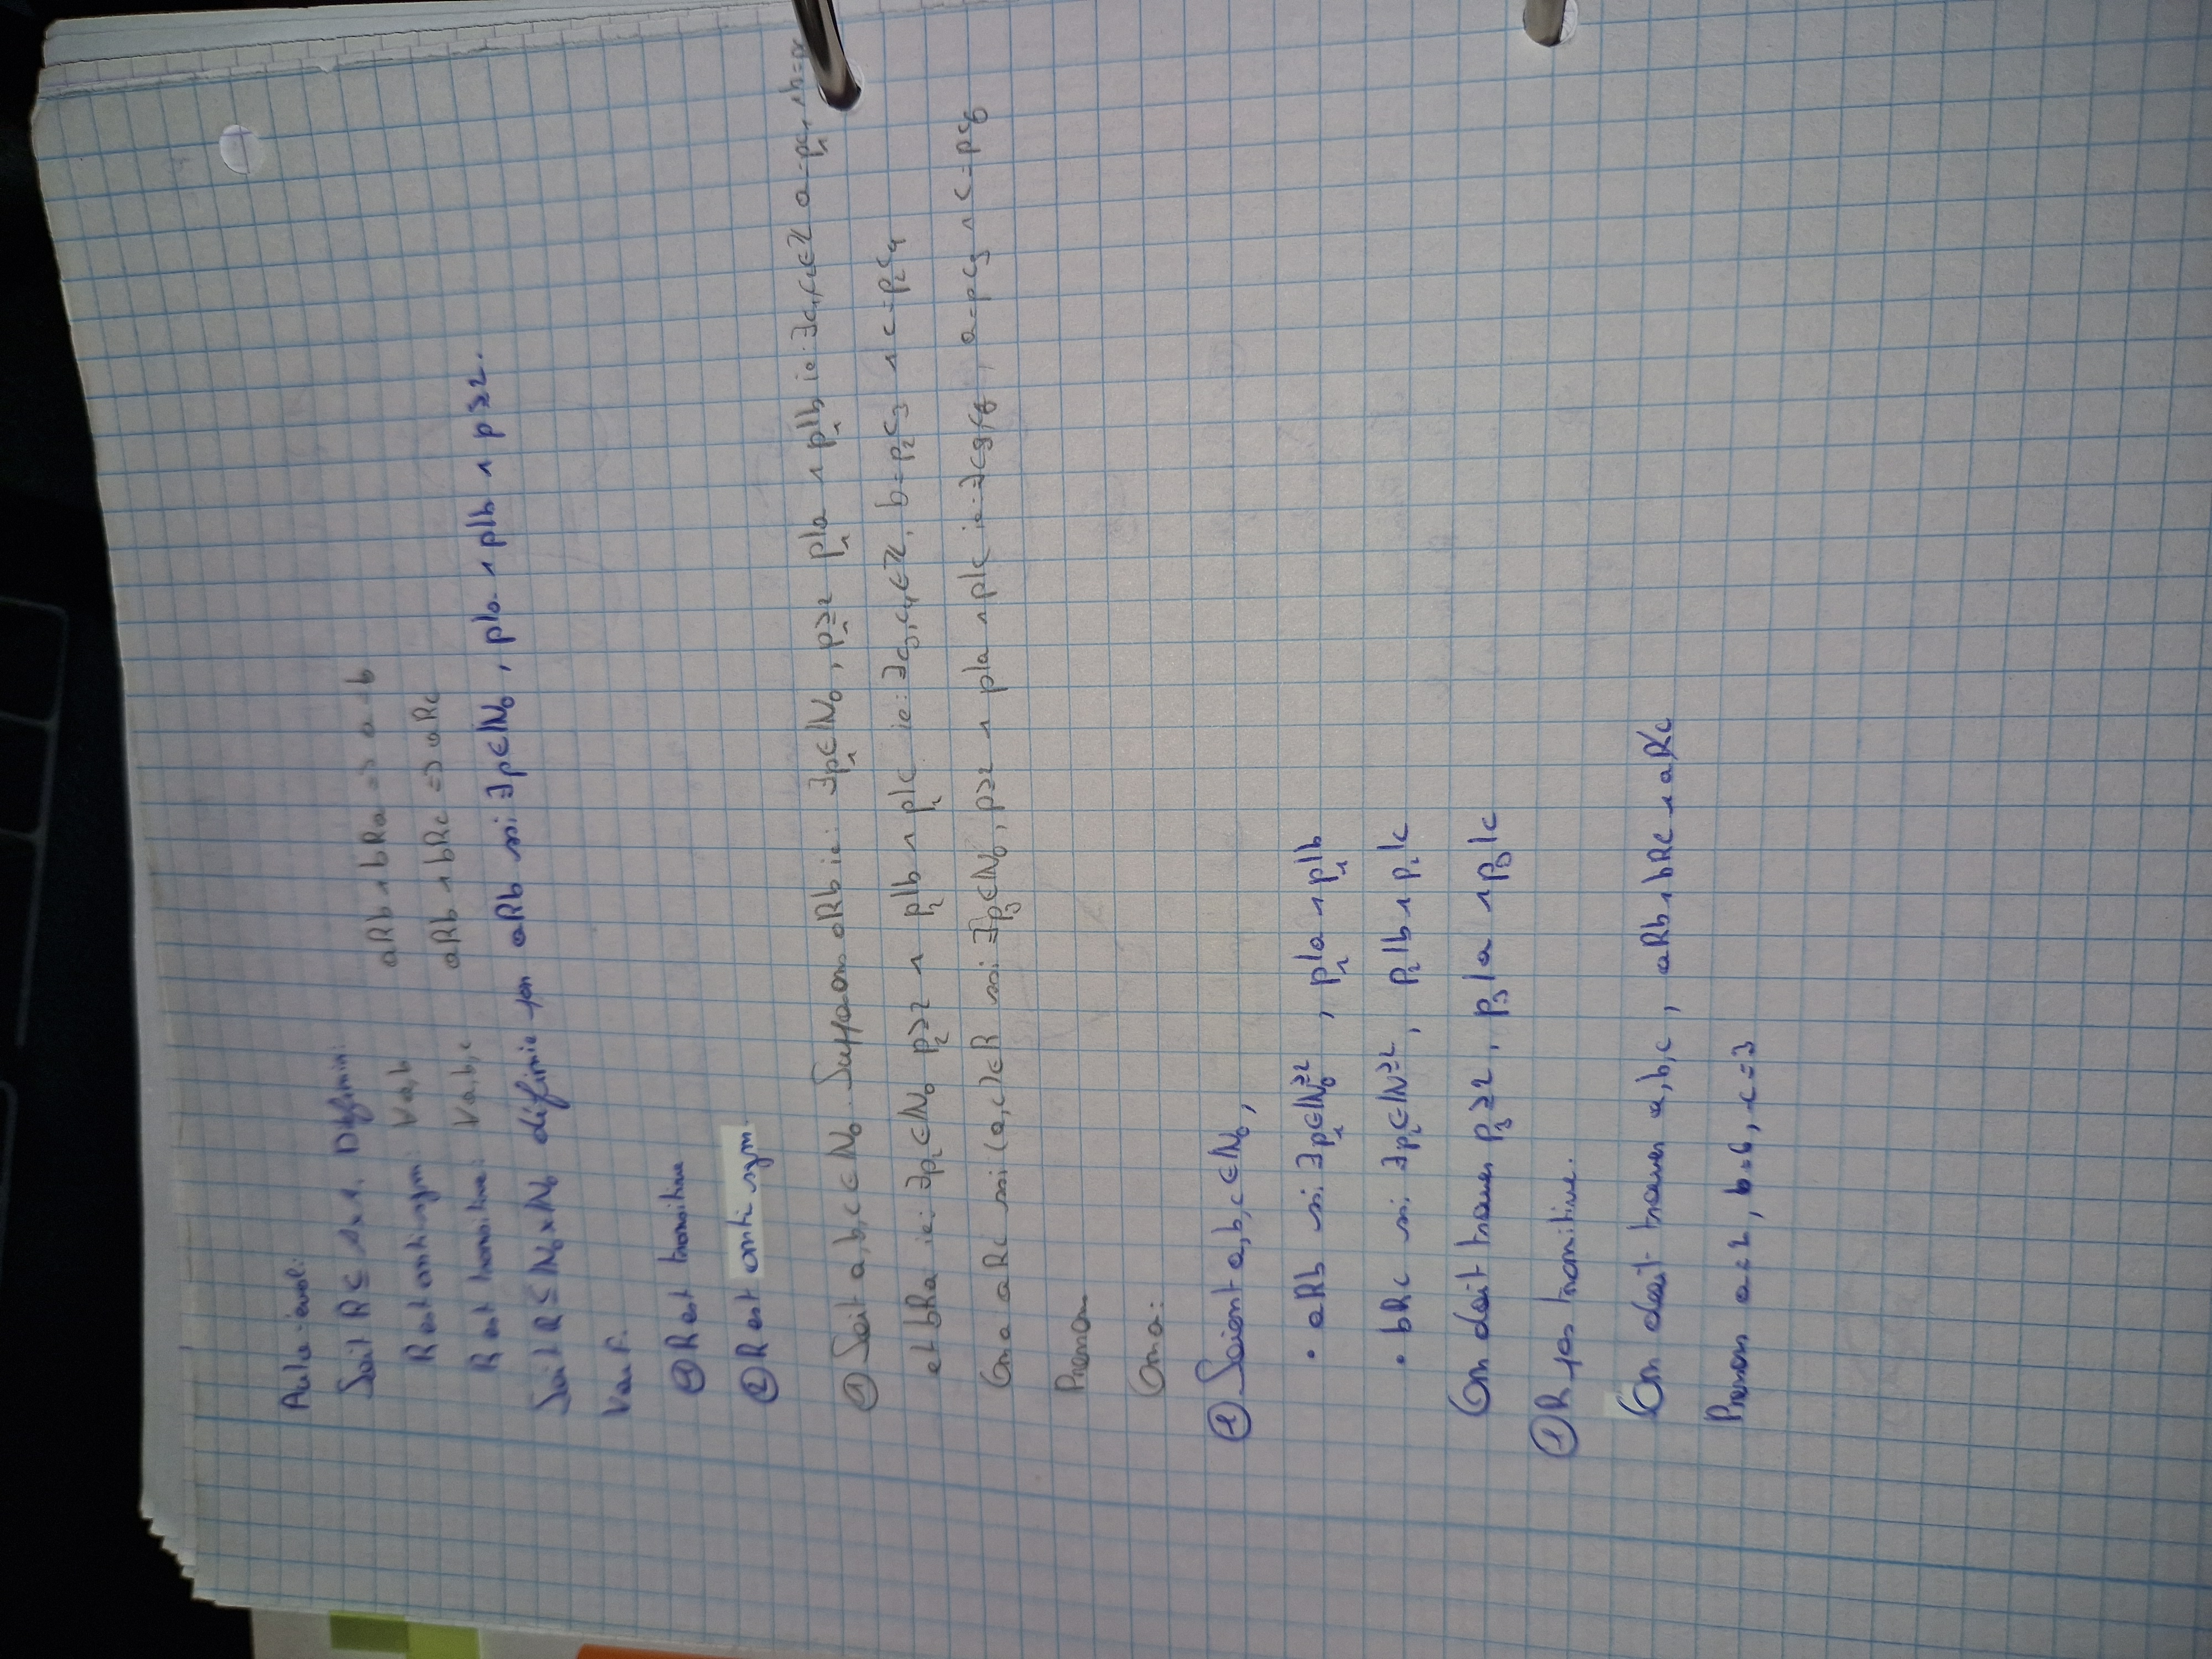 Auto-éval:
Soit R ⊆ A×A. Définir:
R est anti sym: ∀a,b aRb ∧ bRa => a=b
R est transitive: ∀a,b,c aRb ∧ bRc => aRc
Soit R ⊆ ℕ₀×ℕ₀ définie par aRb ssi ∃p∈ℕ₀, p|a ∧ p|b ∧ p≥2.
V ou F.
① R est transitive
② R est anti sym.
① Soit a,b,c ∈ ℕ₀. Supposons aRb ie: ∃p₁∈ℕ₀, p₁≥2 p₁|a ∧ p₁|b ie: ∃c₁,c₂∈ℤ a=p₁c₁ ∧ b=pc
et bRa ie: ∃p₂∈ℕ₀ p₂≥2 ∧ p₂|b ∧ p₂|c ie: ∃c₃,c₄∈ℤ, b=p₂c₃ ∧ c=p₂c₄
On a aRc ssi (a,c)∈R ssi ∃p₃∈ℕ₀, p≥2 ∧ p|a ∧ p|c ie: ∃c₅,c₆, a=pc₅ ∧ c=pc₆
Prenon
On a:
① Soient a,b,c ∈ ℕ₀,
• aRb ssi ∃p₁∈ℕ₀^≥2, p₁|a ∧ p₁|b
• bRc ssi ∃p₂∈ℕ^≥2, p₂|b ∧ p₂|c
On doit trouver p₃≥2, p₃|a ∧ p₃|c
① R pas transitive.
On doit trouver a,b,c, aRb ∧ bRc ∧ aR̸c
Prenons a=2, b=6, c=3